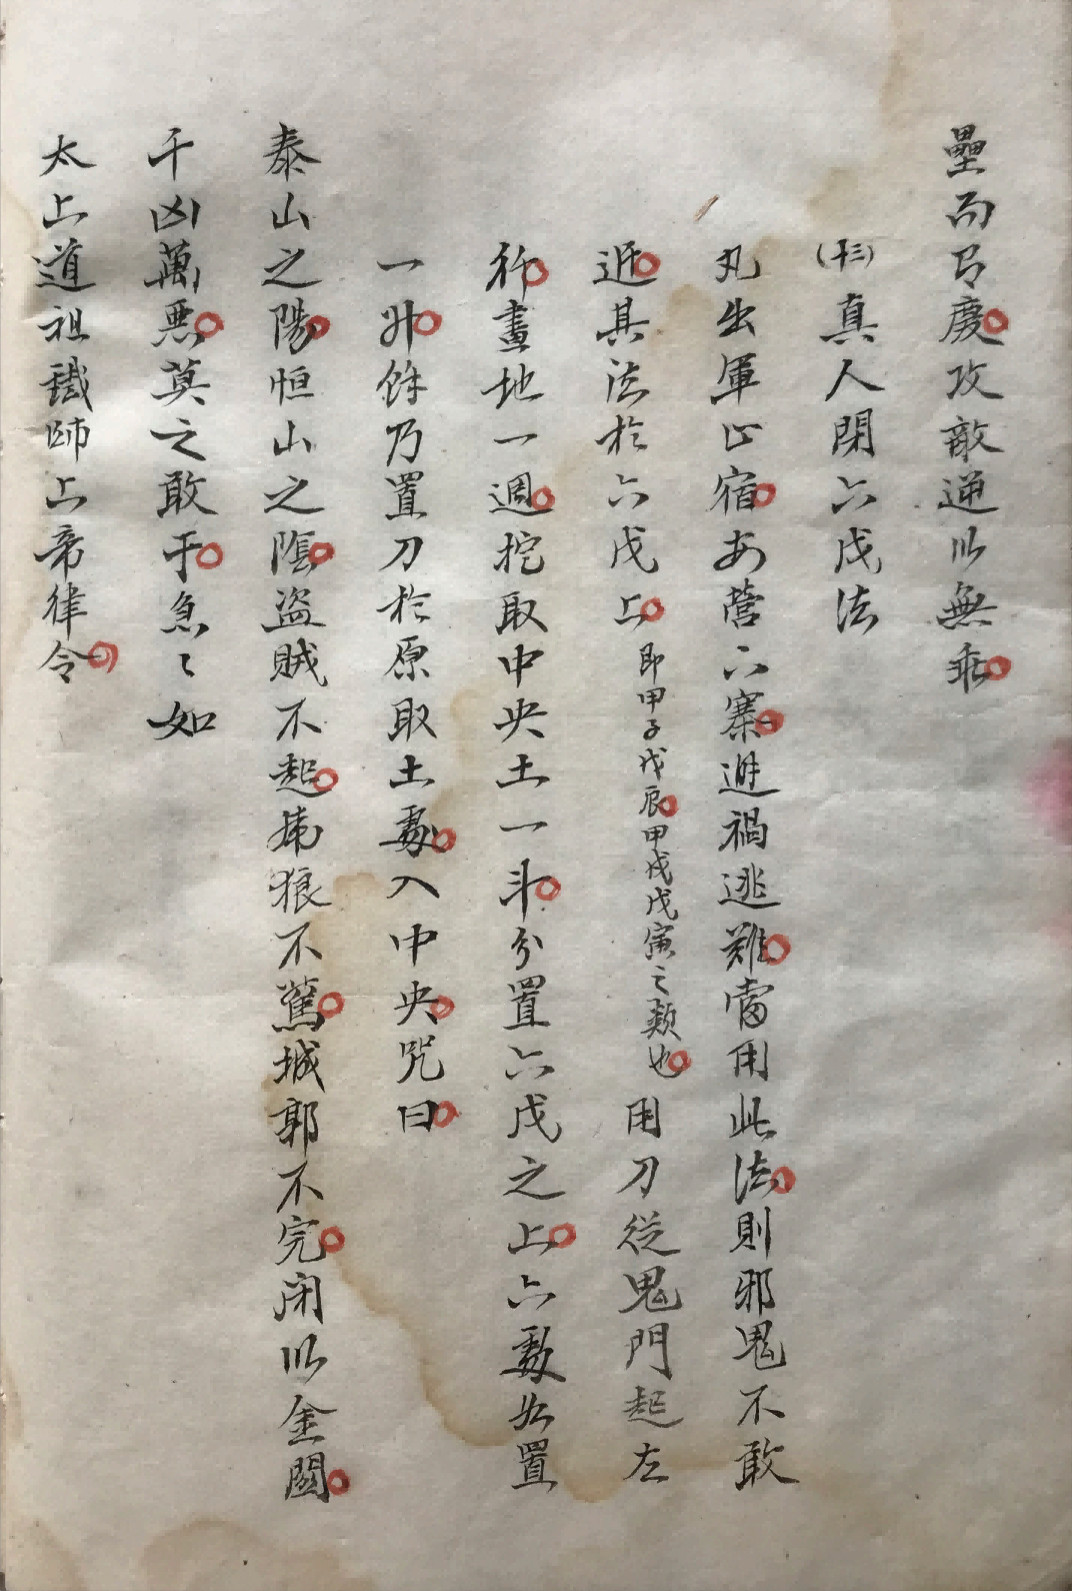 壘而弓慶攻敵遊以無乖
(十三)真人閉六戊法
凡出軍止宿安營六寨避禍逃難當用此法則邪鬼不敢
近其法於六戊上即甲子戊辰甲戌戊寅之類也用刀從鬼門起左
行畫地一週挖取中央土一斗分置六戊之上六處如置
一升餘乃置刀於原取土處入中央咒曰
泰山之陽恒山之陰盜賊不起虎狼不驚城郭不完閉以金關
千凶萬惡莫之敢干急〻如
太上道祖鐵師上帝律令